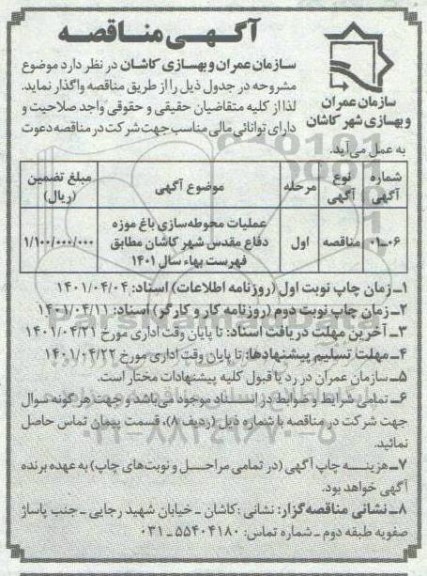 آگهی مناقصه
سازمان عمران
و بهسازی شهر کاشان
سازمان عمران و بهسازی کاشان در نظر دارد موضوع
مشروحه در جدول ذیل را از طریق مناقصه واگذار نماید.
لذا از کلیه متقاضیان حقیقی و حقوقی واجد صلاحیت و
دارای توانائی مالی مناسب جهت شرکت در مناقصه دعوت
به عمل می‌آید.
شماره آگهی نوع آگهی مرحله موضوع آگهی مبلغ تضمین (ریال)
۰۶-۰۱ مناقصه اول عملیات محوطه‌سازی باغ موزه دفاع مقدس شهر کاشان مطابق فهرست بهاء سال ۱۴۰۱ ۱/۱۰۰/۰۰۰/۰۰۰
۱ـ زمان چاپ نوبت اول (روزنامه اطلاعات) اسناد: ۱۴۰۱/۰۴/۰۴
۲ـ زمان چاپ نوبت دوم (روزنامه کار و کارگر) اسناد: ۱۴۰۱/۰۴/۱۱
۳ـ آخرین مهلت دریافت اسناد: تا پایان وقت اداری مورخ ۱۴۰۱/۰۴/۲۱
۴ـ مهلت تسلیم پیشنهادها: تا پایان وقت اداری مورخ ۱۴۰۱/۰۴/۲۲
۵ـ سازمان عمران در رد یا قبول کلیه پیشنهادات مختار است.
۶ـ تمامی شرایط و ضوابط در اسناد موجود می‌باشد و جهت هر گونه سوال
جهت شرکت در مناقصه با شماره ذیل (ردیف ۸)، قسمت پیمان تماس حاصل
نمائید.
۷ـ هزینه چاپ آگهی (در تمامی مراحل و نوبت‌های چاپ) به عهده برنده
آگهی خواهد بود.
۸ـ نشانی مناقصه‌گزار: نشانی: کاشان ـ خیابان شهید رجایی ـ جنب پاساژ
صفویه طبقه دوم ـ شماره تماس: ۵۵۴۰۴۱۸۰ ـ ۰۳۱
۰۲۱-۸۸۳۴۹۶۷۰-۵